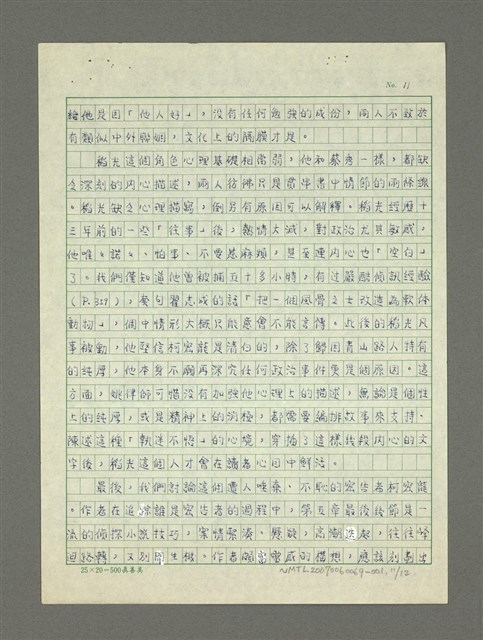 No. 11
給他是因「他人好」，沒有任何勉強的成份，兩人不致於
有類似中外聯姻，文化上的隔膜才是。
稻光這個角色心理基礎相當弱，他和蔡秀一樣，都缺
乏深刻的內心描述，兩人彷彿只是貫串書中情節的兩條線
。稻光缺乏心理描寫，倒另有原因可以解釋。稻光經歷十
三年前的一些「往事」後，熱情大減，對政治尤具敏感，
他唯唯諾諾、怕事、不要惹麻煩，甚至連內心也「空白」
了。我們僅知道他曾被捕五十多小時，有過嚴酷偵訊經驗
（P.327），套句瞿志成的話「把一個風骨之士改造為軟体
動物」，個中情形大概只能意會不能言傳。此後的稻光凡
事被動，他堅信柯宏龍是清白的，除了歸因青山路人特有
的純厚，他本身不願再深究任何政治事件慶是個原因。這
方面，姚律師可惜沒有加強他心理上的描述，無論是個性
上的純厚，或是精神上的消極，都需要編排故事來支持、
陳述這種「執迷不悟」的心境，穿插了這樣線般內心的文
字後，稻光這個人才會在讀者心目中鮮活。
最後，我們討論這個遭人唾棄、不恥的密告者柯宏龍
。作者在追踪誰是密告者的過程中，第五章最後終節是一
流的偵探小說技巧，案情緊湊、懸疑，高潮迭起，往往峰
迴路轉，又別開生機。作者頗富靈感的構想，應該刻劃出
25×20=500真善美
NMTL20070060069-001, 11/12